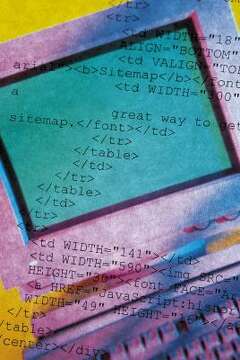 </tr>
<tr>
<td WIDTH="18"
ALIGN="BOTTOM"
<td VALIGN="TOP
arial"><b>Sitemap</b></font
<td WIDTH="300"
a
great way to get
sitemap.</font></td>
</tr>
</table>
</td>
</tr>
</table>
</td>
</tr>
<tr>
<td WIDTH="141"></td>
<td WIDTH="590"><img SRC="
HEIGHT="30"><font FACE="ar
<a HREF="JavaScript:histor
WIDTH="49" HEIGHT="16"></a
</tr>
/table>
/center></div>